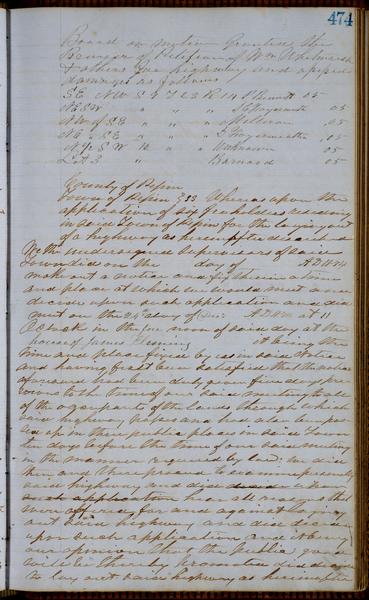 474
Board on motion Granted the
Prayer of Petition of Wm
& others for highway and apprd
damages as follows
SE NW S 5 T 23 R 14 Bennett 05
NE SW " " " 05
NW of SE " " " 05
NE of SE " " " 05
N ½ S W 10 " " Unknown 05
Lot 3 " Barnard 05
County of Pepin
Town of Pepin } SS Whereas upon the
application of six freeholders residing
in said Town of Pepin for the laying out
of a highway as hereinafter described
We the undersigned Supervisors of said
Town did on the day of AD
make out a notice and fix therein a time
and place at which we would meet and
decide upon such application and did
met on the 24 day of AD at 11
O clock in the fore noon of said day at the
house of James it being the
time and place fixed by us in said notice
and having first been satisfied that the notice
aforesaid had been duly given five days pre
vious to the time of our said meeting to all
of the occupants of the lands through which
said highway and has also been pos
ted up in three public places in said Town
ten days before the time of our said meeting
in the manner required by law we did
then and there proceed to examine personally
said highway and did
such application hear all reasons that
were offered for and against laying
out said highway and did decide
upon such application and it being
our opinion that the public good
will be thereby promoted did
to lay out said highway as hereinafter